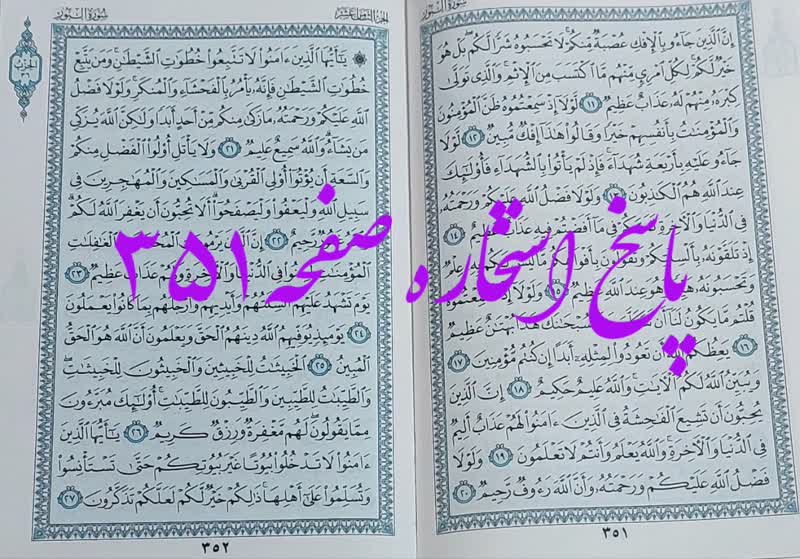 سُورَةُ النُّورِ
إِنَّ الَّذِينَ جَاءُو بِالْإِفْكِ عُصْبَةٌ مِنْكُمْ لَا تَحْسَبُوهُ شَرًّا لَكُمْ بَلْ هُوَ
خَيْرٌ لَكُمْ لِكُلِّ امْرِئٍ مِنْهُمْ مَا اكْتَسَبَ مِنَ الْإِثْمِ وَالَّذِي تَوَلَّى
كِبْرَهُ مِنْهُمْ لَهُ عَذَابٌ عَظِيمٌ ١١ لَوْلَا إِذْ سَمِعْتُمُوهُ ظَنَّ الْمُؤْمِنُونَ
وَالْمُؤْمِنَاتُ بِأَنْفُسِهِمْ خَيْرًا وَقَالُوا هَذَا إِفْكٌ مُبِينٌ ١٢ لَوْلَا
جَاءُو عَلَيْهِ بِأَرْبَعَةِ شُهَدَاءَ فَإِذْ لَمْ يَأْتُوا بِالشُّهَدَاءِ فَأُولَئِكَ
عِنْدَ اللَّهِ هُمُ الْكَاذِبُونَ ١٣ وَلَوْلَا فَضْلُ اللَّهِ عَلَيْكُمْ وَرَحْمَتُهُ
فِي الدُّنْيَا وَالْآخِرَةِ لَمَسَّكُمْ فِي مَا أَفَضْتُمْ فِيهِ عَذَابٌ عَظِيمٌ ١٤
إِذْ تَلَقَّوْنَهُ بِأَلْسِنَتِكُمْ وَتَقُولُونَ بِأَفْوَاهِكُمْ مَا لَيْسَ لَكُمْ بِهِ عِلْمٌ
وَتَحْسَبُونَهُ هَيِّنًا وَهُوَ عِنْدَ اللَّهِ عَظِيمٌ ١٥ وَلَوْلَا إِذْ سَمِعْتُمُوهُ
قُلْتُمْ مَا يَكُونُ لَنَا أَنْ سُبْحَانَكَ هَذَا بُهْتَانٌ عَظِيمٌ
١٦ يَعِظُكُمُ اللَّهُ أَنْ تَعُودُوا لِمِثْلِهِ أَبَدًا إِنْ كُنْتُمْ مُؤْمِنِينَ ١٧
وَيُبَيِّنُ اللَّهُ لَكُمُ الْآيَاتِ وَاللَّهُ عَلِيمٌ حَكِيمٌ ١٨ إِنَّ الَّذِينَ
يُحِبُّونَ أَنْ تَشِيعَ الْفَاحِشَةُ فِي الَّذِينَ آمَنُوا لَهُمْ عَذَابٌ أَلِيمٌ
فِي الدُّنْيَا وَالْآخِرَةِ وَاللَّهُ يَعْلَمُ وَأَنْتُمْ لَا تَعْلَمُونَ ١٩ وَلَوْلَا
فَضْلُ اللَّهِ عَلَيْكُمْ وَرَحْمَتُهُ وَأَنَّ اللَّهَ رَءُوفٌ رَحِيمٌ ٢٠
٣٥١
پاسخ استخاره صفحه ۳۵۱
الجزء الثامن عشر
سُورَةُ النُّورِ
الحزب ٣٦
يَا أَيُّهَا الَّذِينَ آمَنُوا لَا تَتَّبِعُوا خُطُوَاتِ الشَّيْطَانِ وَمَنْ يَتَّبِعْ
خُطُوَاتِ الشَّيْطَانِ فَإِنَّهُ يَأْمُرُ بِالْفَحْشَاءِ وَالْمُنْكَرِ وَلَوْلَا فَضْلُ
اللَّهِ عَلَيْكُمْ وَرَحْمَتُهُ مَا زَكَى مِنْكُمْ مِنْ أَحَدٍ أَبَدًا وَلَكِنَّ اللَّهَ يُزَكِّي
مَنْ يَشَاءُ وَاللَّهُ سَمِيعٌ عَلِيمٌ ٢١ وَلَا يَأْتَلِ أُولُو الْفَضْلِ مِنْكُمْ
وَالسَّعَةِ أَنْ يُؤْتُوا أُولِي الْقُرْبَى وَالْمَسَاكِينَ وَالْمُهَاجِرِينَ فِي
سَبِيلِ اللَّهِ وَلْيَعْفُوا وَلْيَصْفَحُوا أَلَا تُحِبُّونَ أَنْ يَغْفِرَ اللَّهُ لَكُمْ
رَحِيمٌ ٢٢ إِنَّ الَّذِينَ يَرْمُونَ الْمُحْصَنَاتِ الْغَافِلَاتِ
الْمُؤْمِنَاتِ لُعِنُوا فِي الدُّنْيَا وَالْآخِرَةِ وَلَهُمْ عَذَابٌ عَظِيمٌ ٢٣
يَوْمَ تَشْهَدُ عَلَيْهِمْ أَلْسِنَتُهُمْ وَأَيْدِيهِمْ وَأَرْجُلُهُمْ بِمَا كَانُوا يَعْمَلُونَ
٢٤ يَوْمَئِذٍ يُوَفِّيهِمُ اللَّهُ دِينَهُمُ الْحَقَّ وَيَعْلَمُونَ أَنَّ اللَّهَ هُوَ الْحَقُّ
الْمُبِينُ ٢٥ الْخَبِيثَاتُ لِلْخَبِيثِينَ وَالْخَبِيثُونَ لِلْخَبِيثَاتِ
وَالطَّيِّبَاتُ لِلطَّيِّبِينَ وَالطَّيِّبُونَ لِلطَّيِّبَاتِ أُولَئِكَ مُبَرَّءُونَ
مِمَّا يَقُولُونَ لَهُمْ مَغْفِرَةٌ وَرِزْقٌ كَرِيمٌ ٢٦ يَا أَيُّهَا الَّذِينَ
آمَنُوا لَا تَدْخُلُوا بُيُوتًا غَيْرَ بُيُوتِكُمْ حَتَّى تَسْتَأْنِسُوا
وَتُسَلِّمُوا عَلَى أَهْلِهَا ذَلِكُمْ خَيْرٌ لَكُمْ لَعَلَّكُمْ تَذَكَّرُونَ ٢٧
٣٥٢